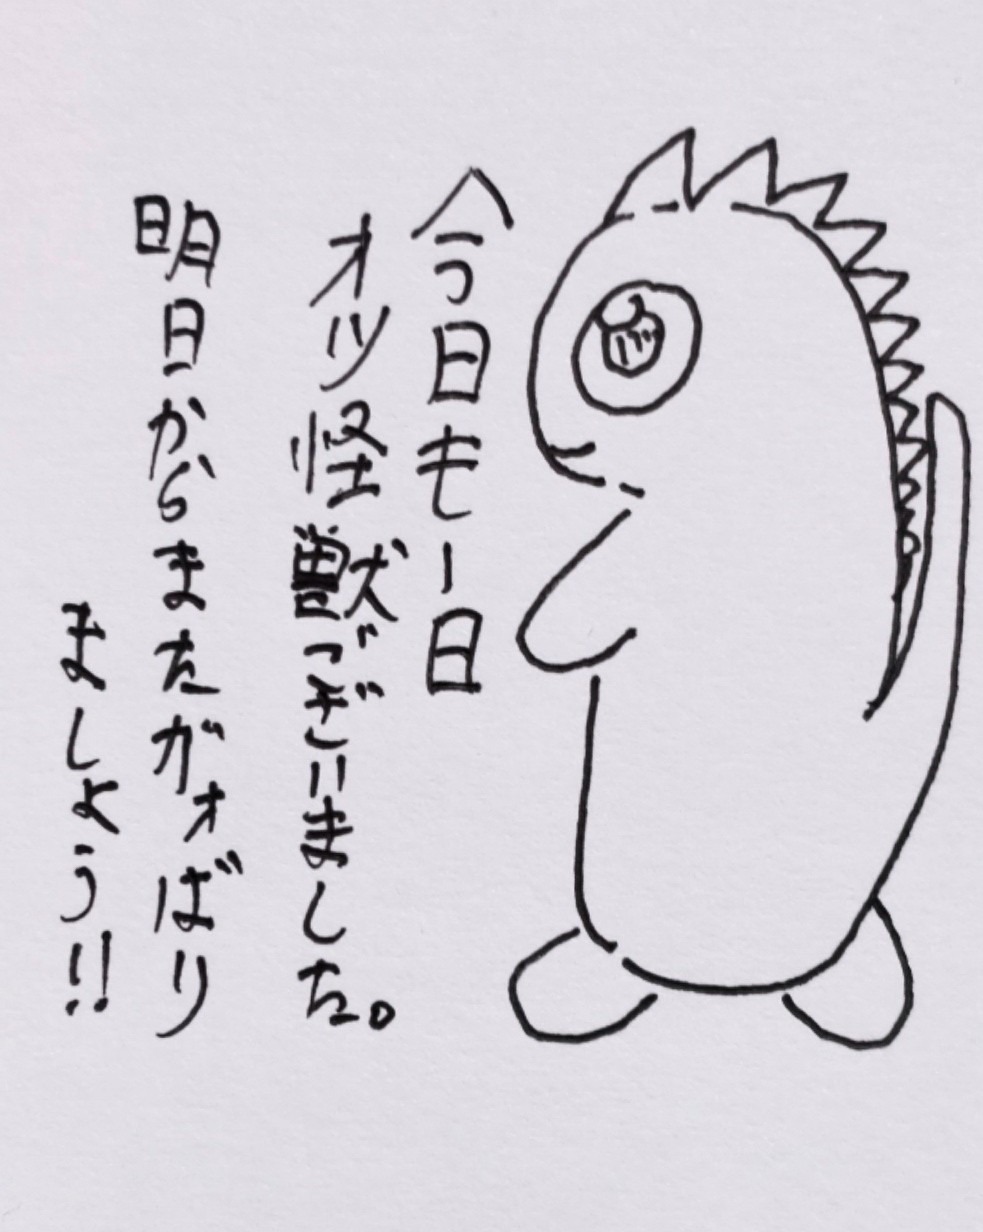 今日も一日
オツ怪獣っございました。
明日からまたガォばり
ましょう!!